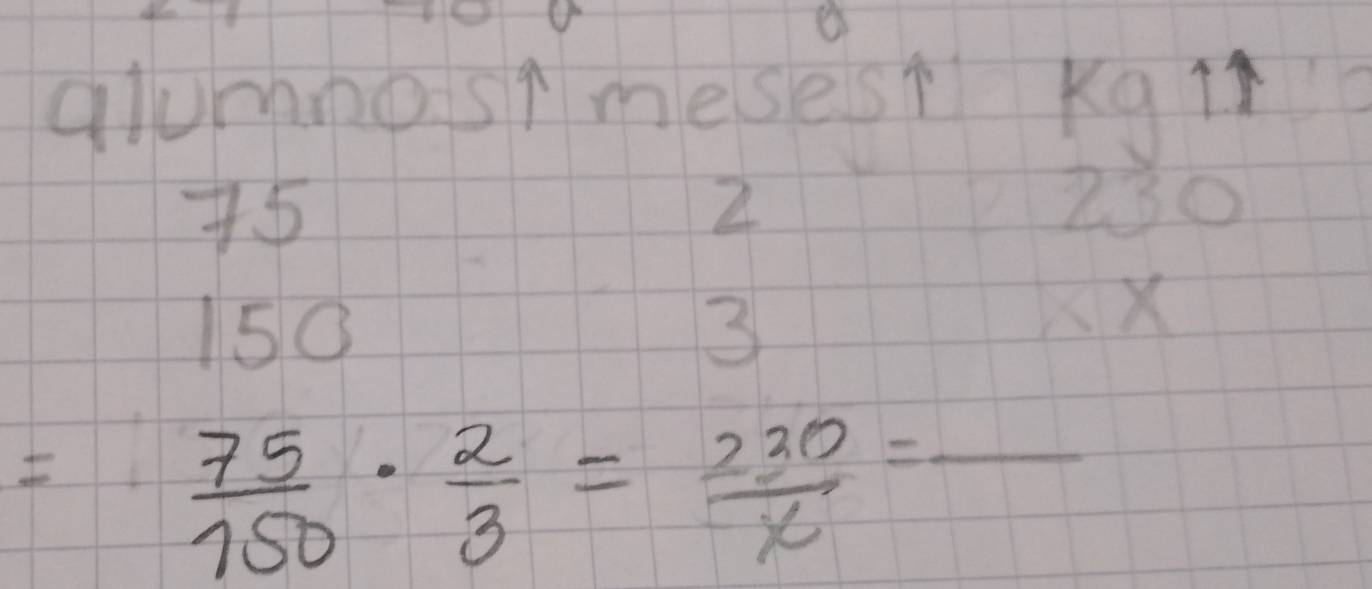 alumnos↑ meses↑ Kg ↑↑
75 2 230
150 3 x
= 75/150 · 2/3 = 230/x = —